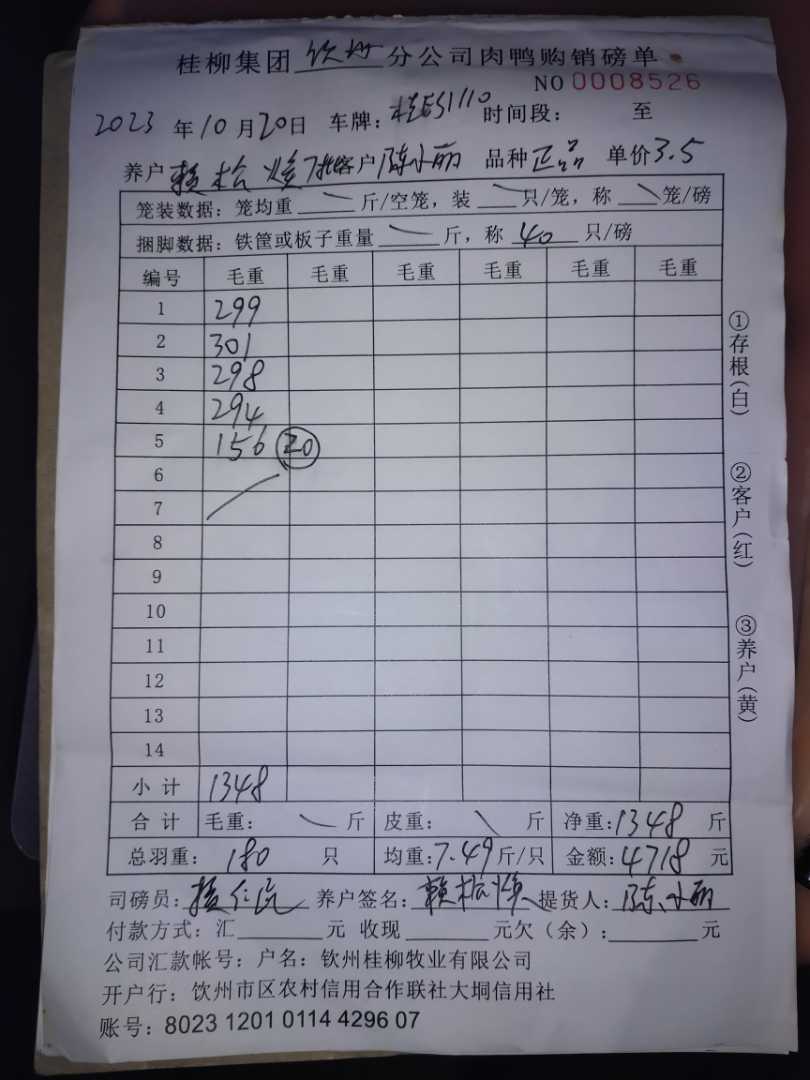 桂柳集团 钦州 分公司肉鸭购销磅单
NO 0008526
2023 年 10 月 20 日 车牌：桂ES1110 时间段： 至
养户 赖松焕 客户 陈小丽 品种 正品 单价 3.5
笼装数据：笼均重 斤/空笼，装 只/笼，称 笼/磅
捆脚数据：铁筐或板子重量 斤，称 40 只/磅
编号 毛重 毛重 毛重 毛重 毛重 毛重
1 299
2 301
3 298
4 294
5 156 20
6
7
8
9
10
11
12
13
14
小计 1348
合计 毛重： 斤 皮重： 斤 净重：1348 斤
总羽重： 180 只 均重：7.49 斤/只 金额：4718 元
司磅员： 养户签名：赖松焕 提货人：陈小丽
付款方式：汇 元 收现 元欠（余）： 元
公司汇款帐号：户名：钦州桂柳牧业有限公司
开户行：饮州市区农村信用合作联社大垌信用社
账号：8023 1201 0114 4296 07
①存根（白）
②客户（红）
③养户（黄）